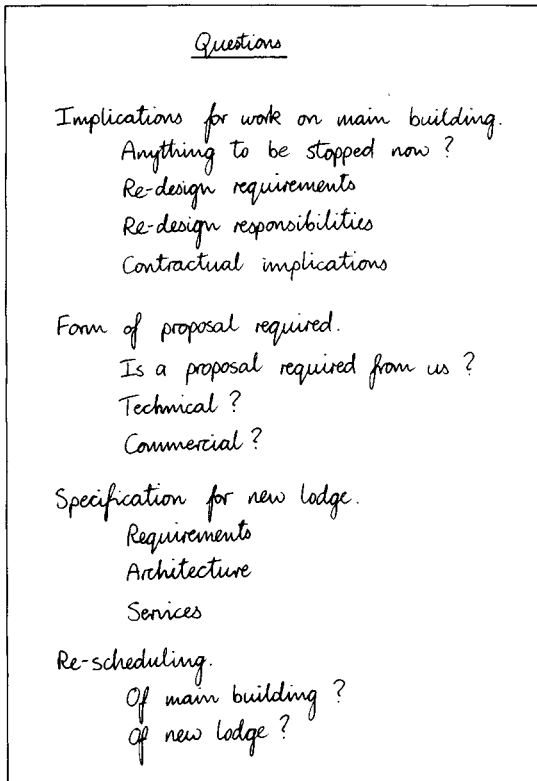 Questions
Implications for work on main building.
Anything to be stopped now ?
Re-design requirements
Re-design responsibilities
Contractual implications
Form of proposal required.
Is a proposal required from us ?
Technical ?
Commercial ?
Specification for new lodge.
Requirements
Architecture
Services
Re-scheduling.
Of main building ?
Of new lodge ?